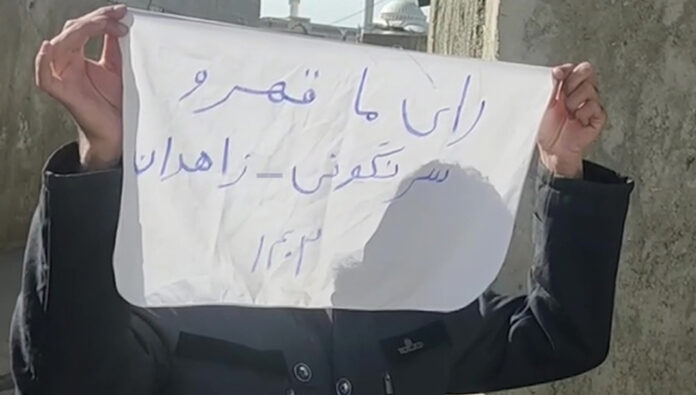 رای ما قهرو
سرنگونی - زاهدان